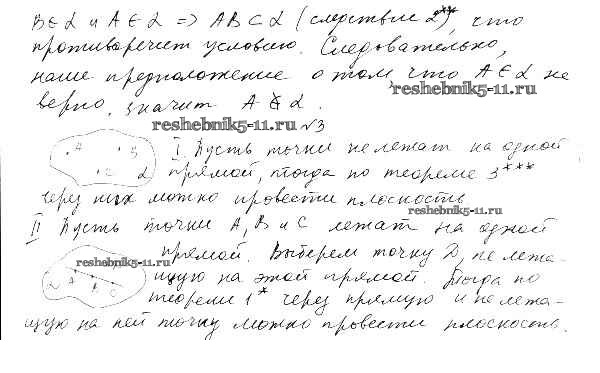 B ∈ α и A ∈ α => AB ⊂ α (следствие 2**), что
противоречит условию. Следовательно,
наше предположение о том, что A ∈ α не
верно, значит A ∉ α.
reshebnik5-11.ru
reshebnik5-11.ru №3
A B C α
I Пусть точки не лежат на одной
прямой, тогда по теореме 3***
через них можно провести плоскость
reshebnik5-11.ru
II Пусть точки A, B и C лежат на одной
reshebnik5-11.ru
α A B C
прямой. Выберем точку D, не лежа-
щую на этой прямой. Тогда по
теореме 1* через прямую и не лежа-
щую на ней точку можно провести плоскость.